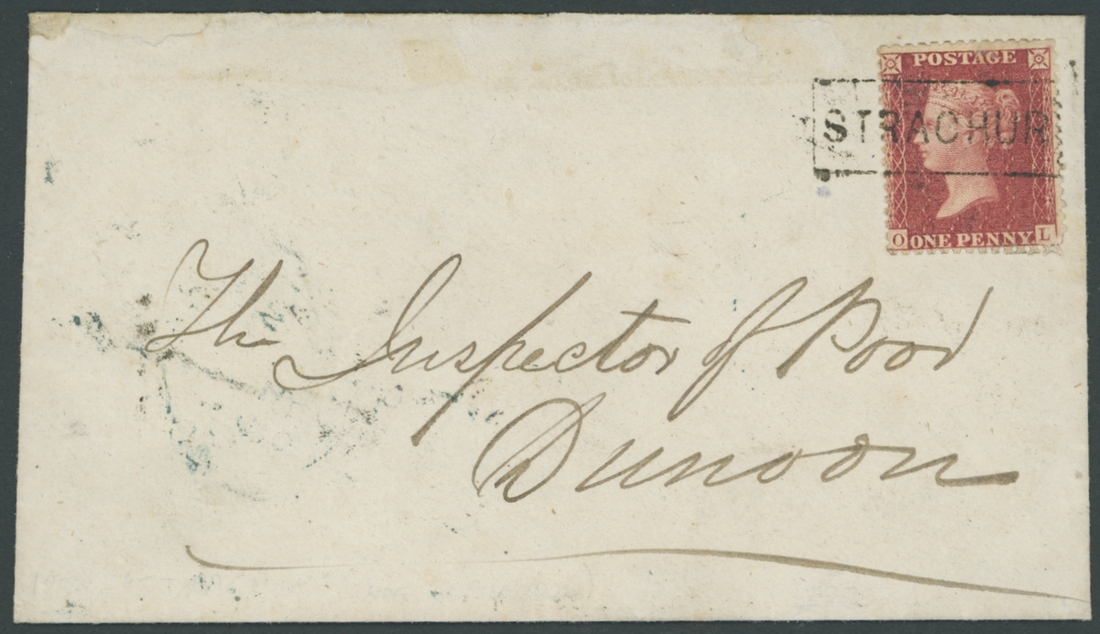 POSTAGE
STRACHUR
O ONE PENNY L
The Inspector of Poor
Dunoon